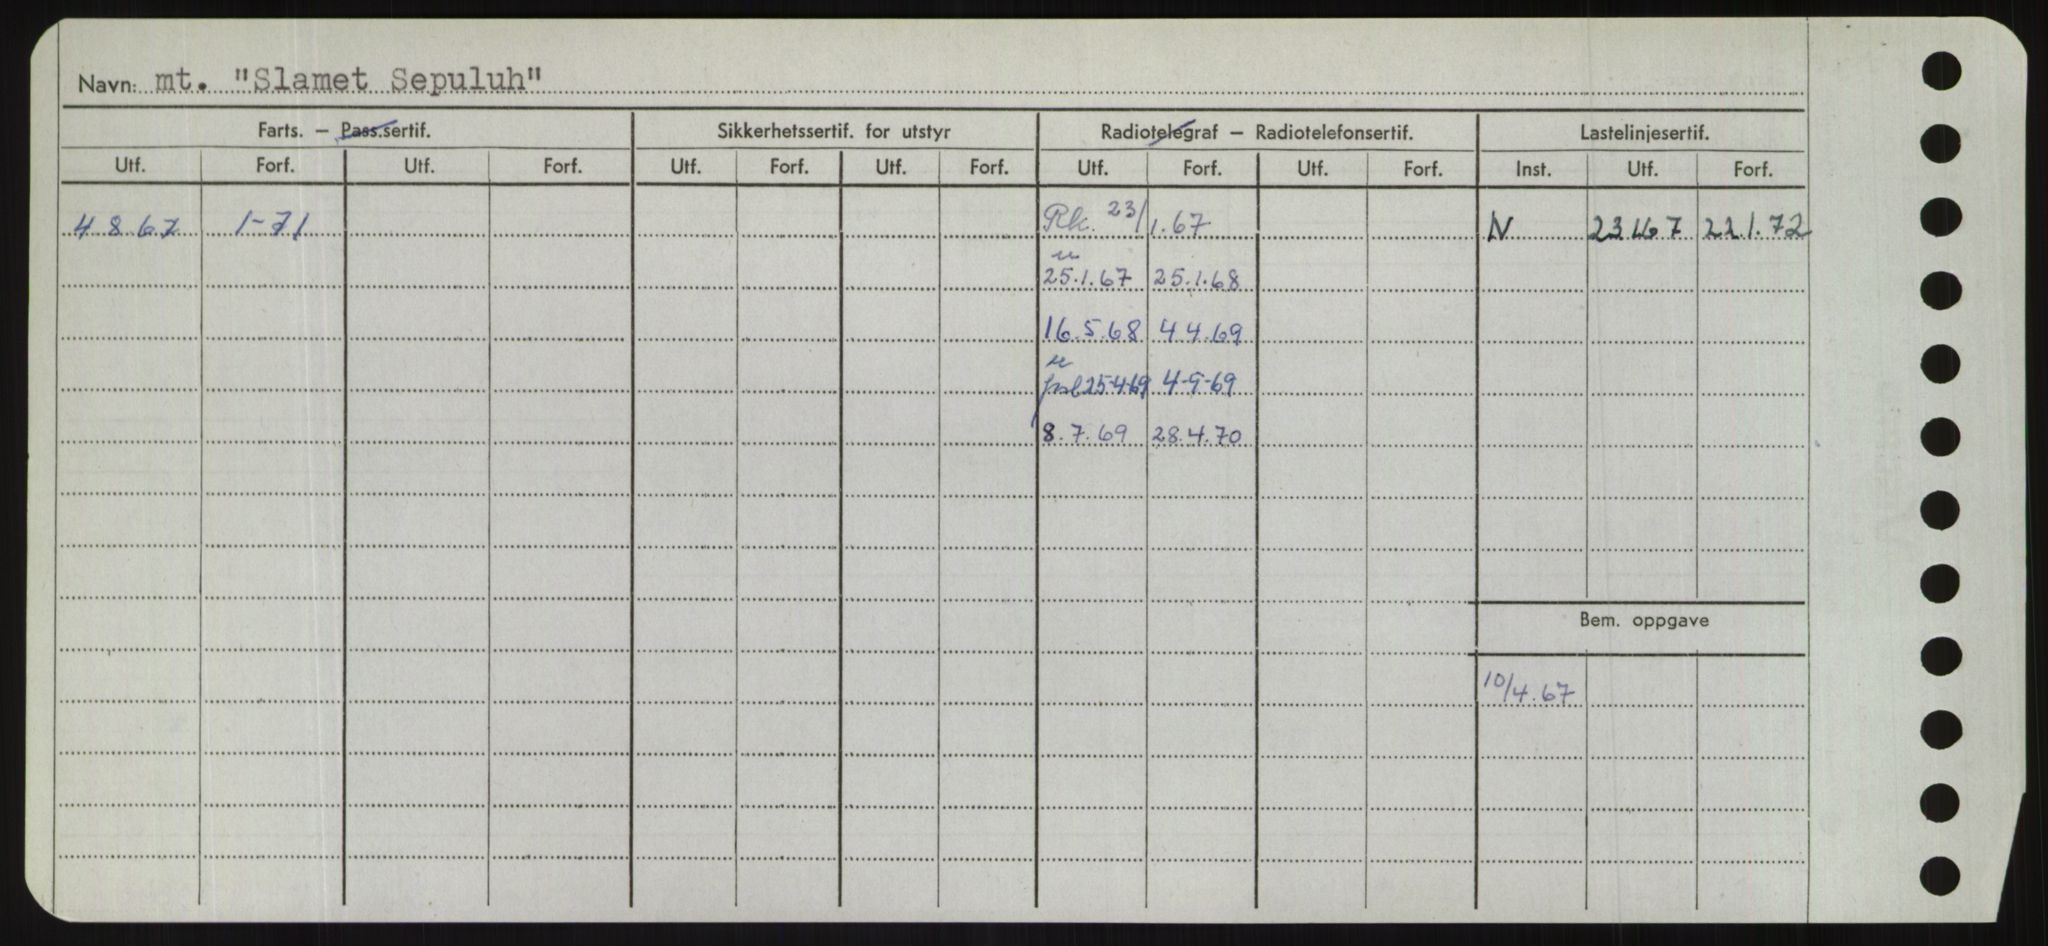 Navn: mt. "Slamet Sepuluh"
Farts. — Pass.sertif. Sikkerhetssertif. for utstyr Radiotelegraf — Radiotelefonsertif. Lastelinjesertif.
Utf. Forf. Utf. Forf. Utf. Forf. Utf. Forf. Utf. Forf. Utf. Forf. Inst. Utf. Forf.
4 8.67 1-71 Rk. 23/1.67 N 23 1.67 22 1.72
25.1.67 25.1.68
16.5.68 4 4.69
25-4-69 4-9-69
8.7.69 28.4.70
Bem. oppgave
10/4.67